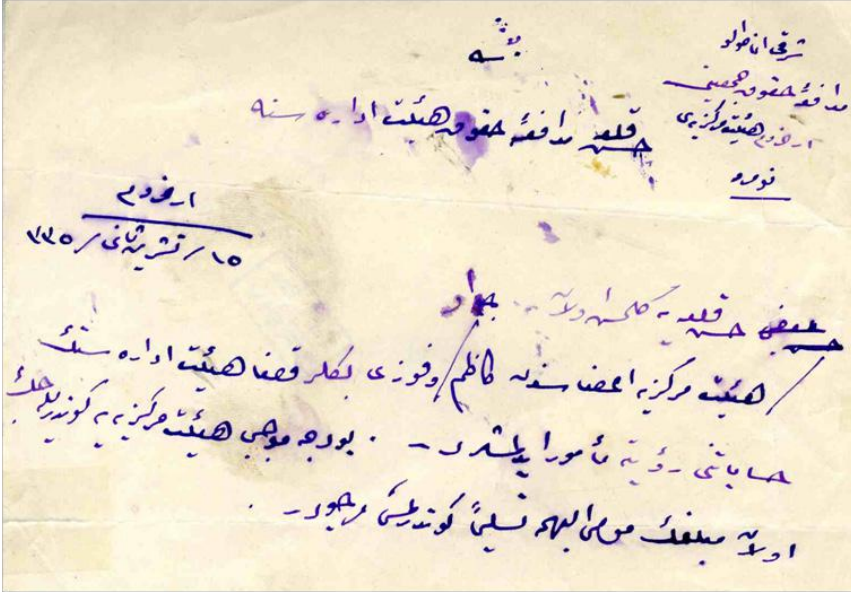 شرقی اناطولو
مدافعهٔ حقوق جمعیتی
ارضروم هیئت مرکزیه‌سی
نومرو
حسن قلعه مدافعهٔ حقوق هیئت اداره سنه
ارضروم
١٥ / تشرین ثانی / ٣٣٥
حسن قلعه یه كلمش اولان جواد
هیئت مرکزیه اعضاسندن كاظم / وفوزی بكلر قضا هیئت اداره سنك
حساباتنی رؤیته مأمور ایدلمشدر . بودجه موجبی هیئت مرکزیه یه كوندریله جك
اولان مبلغك مومی الیهمه تسلیماً كوندرلمسی مرجودر .